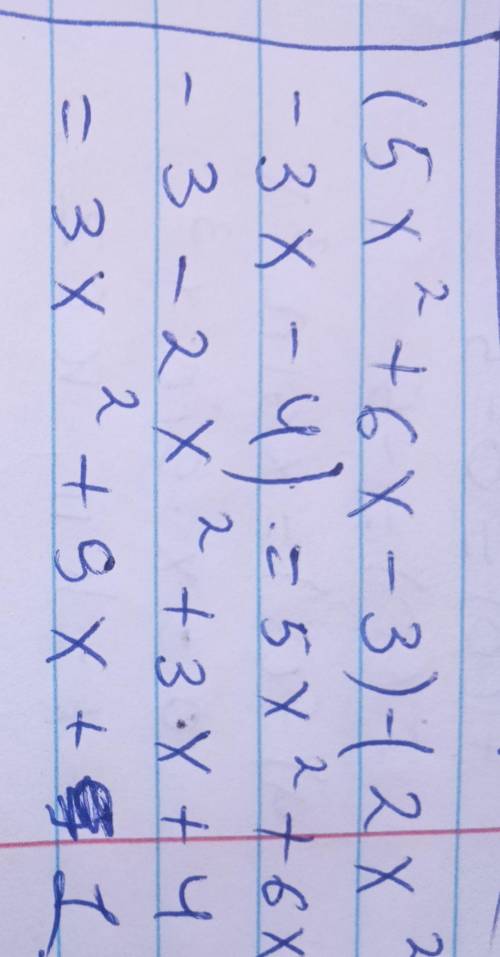 (5x² + 6x - 3) - (2x²
- 3x - 4) = 5x² + 6x
- 3 - 2x² + 3x + 4
= 3x² + 9x + 1